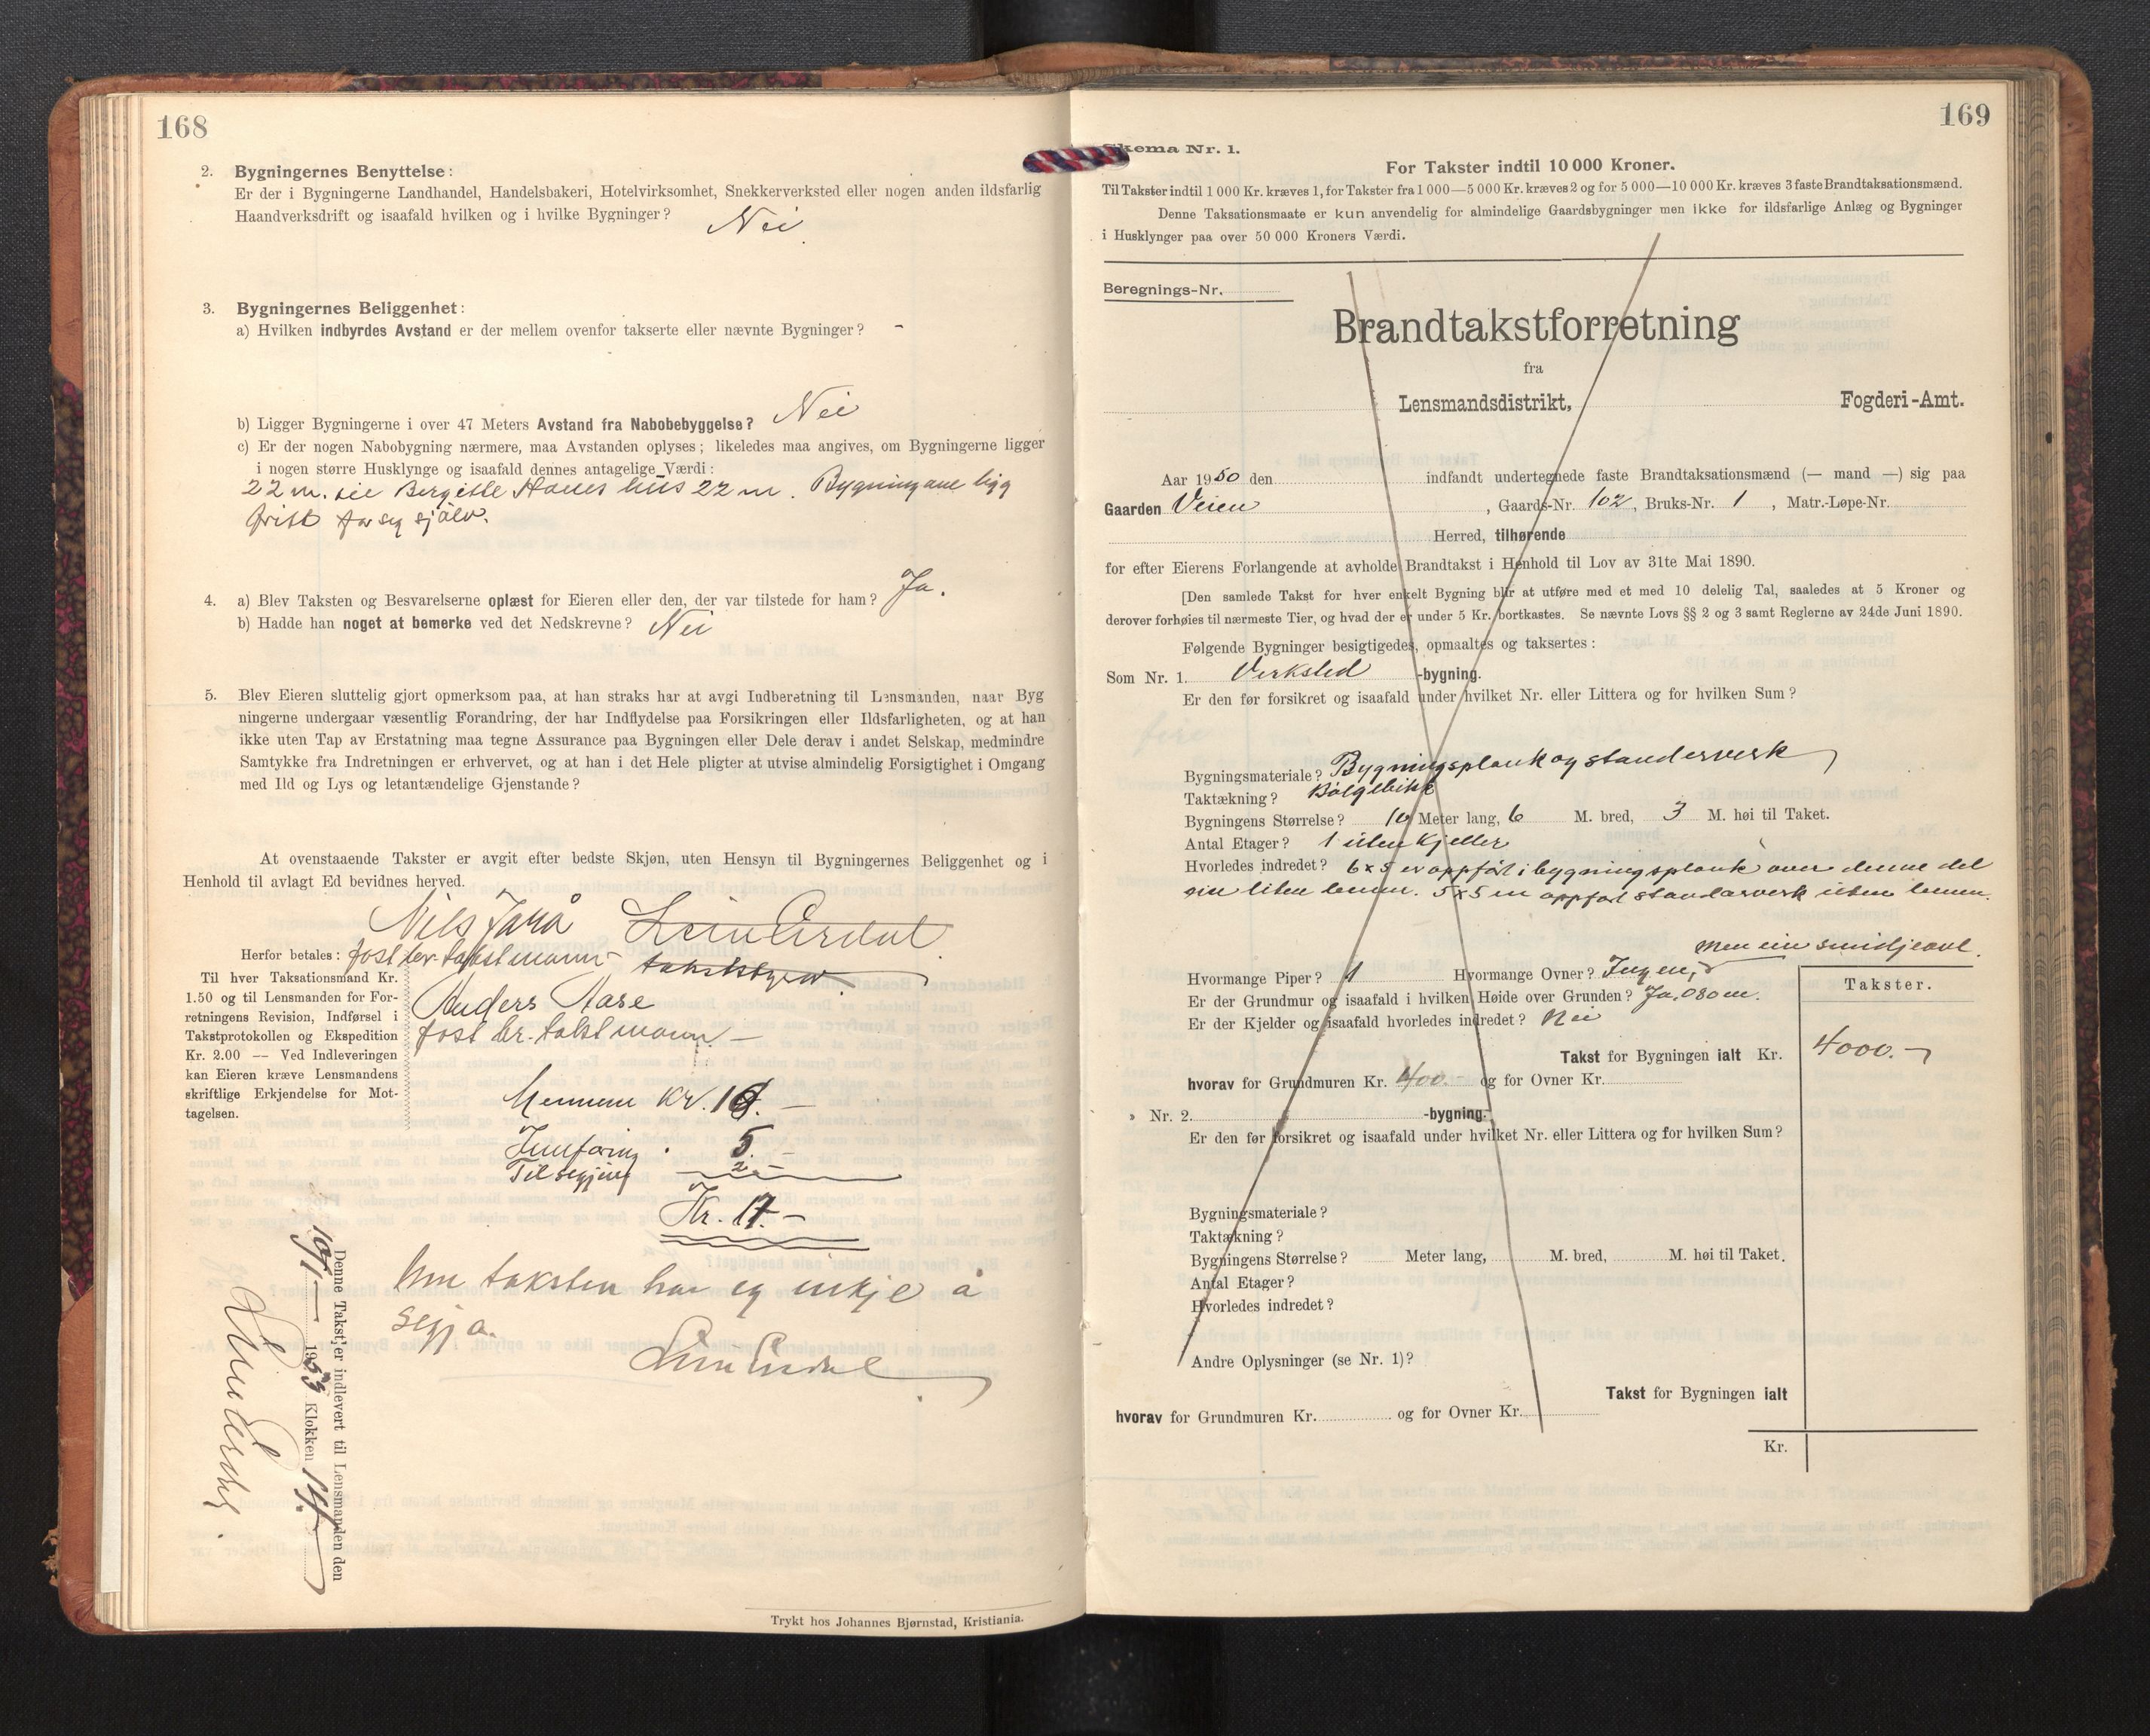 168
2. Bygningernes Benyttelse:
Er der i Bygningerne Landhandel, Handelsbakeri, Hotelvirksomhet, Snekkerverksted eller nogen anden ildsfarlig
Haandverksdrift og isaafald hvilken og i hvilke Bygninger? Nei
3. Bygningernes Beliggenhet:
a) Hvilken indbyrdes Avstand er der mellem ovenfor takserte eller nævnte Bygninger? -
b) Ligger Bygningerne i over 47 Meters Avstand fra Nabobebyggelse? Nei
c) Er der nogen Nabobygning nærmere, maa Avstanden oplyses; likeledes maa angives, om Bygningerne ligger
i nogen større Husklynge og isaafald dennes antagelige Værdi:
22 m. hus 22 m. Bygningane ligg
fritt for seg sjølv.
4. a) Blev Taksten og Besvarelserne oplæst for Eieren eller den, der var tilstede for ham? Ja.
b) Hadde han noget at bemerke ved det Nedskrevne? Nei
5. Blev Eieren sluttelig gjort opmerksom paa, at han straks har at avgi Indberetning til Lensmanden, naar Byg
ningerne undergaar væsentlig Forandring, der har Indflydelse paa Forsikringen eller Ildsfarligheten, og at han
ikke uten Tap av Erstatning maa tegne Assurance paa Bygningen eller Dele derav i andet Selskap, medmindre
Samtykke fra Indretningen er erhvervet, og at han i det Hele pligter at utvise almindelig Forsigtighet i Omgang
med Ild og Lys og letantændelige Gjenstande?
At ovenstaaende Takster er avgit efter bedste Skjøn, uten Hensyn til Bygningernes Beliggenhet og i
Henhold til avlagt Ed bevidnes herved.
Nils
fast br. takstmann
Anders Aase
fast br. takstmann -
Herfor betales:
Til hver Taksationsmand Kr.
1.50 og til Lensmanden for For-
retningens Revision, Indførsel i
Takstprotokollen og Ekspedition
Kr. 2.00 — Ved Indleveringen
kan Eieren kræve Lensmandens
skriftlige Erkjendelse for Mot-
tagelsen.
Mennene Kr. 10. -
Innføring 5. -
Tilsegjing 2. -
Kr. 17. -
Um taksten har eg inkje å
segja.
Denne Takst er indlevert til Lensmanden den
10/1 1953 Klokken 14
Trykt hos Johannes Bjørnstad, Kristiania.
169
Skema Nr. 1.
For Takster indtil 10 000 Kroner.
Til Takster indtil 1 000 Kr. kræves 1, for Takster fra 1 000—5 000 Kr. kræves 2 og for 5 000—10 000 Kr. kræves 3 faste Brandtaksationsmænd.
Denne Taksationsmaate er kun anvendelig for almindelige Gaardsbygninger men ikke for ildsfarlige Anlæg og Bygninger
i Husklynger paa over 50 000 Kroners Værdi.
Beregnings-Nr.
Brandtakstforretning
fra
Lensmandsdistrikt, Fogderi-Amt.
Aar 1950 den indfandt undertegnede faste Brandtaksationsmænd (— mand —) sig paa
Gaarden Veien, Gaards-Nr. 102, Bruks-Nr. 1, Matr.-Løpe-Nr.
Herred, tilhørende
for efter Eierens Forlangende at avholde Brandtakst i Henhold til Lov av 31te Mai 1890.
[Den samlede Takst for hver enkelt Bygning blir at utføre med et med 10 delelig Tal, saaledes at 5 Kroner og
derover forhøies til nærmeste Tier, og hvad der er under 5 Kr. bortkastes. Se nævnte Lovs §§ 2 og 3 samt Reglerne av 24de Juni 1890.
Følgende Bygninger besigtigedes, opmaaltes og taksertes:
Som Nr. 1. Verksted -bygning.
Er den før forsikret og isaafald under hvilket Nr. eller Littera og for hvilken Sum?
Bygningsmateriale? Bygningsplank og standerverk
Taktækning? Bølgeblikk
Bygningens Størrelse? 10 Meter lang, 6 M. bred, 3 M. høi til Taket.
Antal Etager? 1 uten kjeller
Hvorledes indredet? 6x5 er oppført i bygningsplank over denne del
ein liten lemm. 5x5 m oppført standarverk uten lemm.
Hvormange Piper? 1 Hvormange Ovner? Ingen, men ein smidjeavl.
Er der Grundmur og isaafald i hvilken Høide over Grunden? Ja, 080 m.
Er der Kjelder og isaafald hvorledes indredet? Nei
Takster.
Takst for Bygningen ialt Kr. 4000.-
hvorav for Grundmuren Kr. 400.- og for Ovner Kr.
» Nr. 2. -bygning.
Er den før forsikret og isaafald under hvilket Nr. eller Littera og for hvilken Sum?
Bygningsmateriale?
Taktækning?
Bygningens Størrelse? Meter lang, M. bred, M. høi til Taket.
Antal Etager?
Hvorledes indredet?
Andre Oplysninger (se Nr. 1)?
Takst for Bygningen ialt
hvorav for Grundmuren Kr. og for Ovner Kr.
Kr.